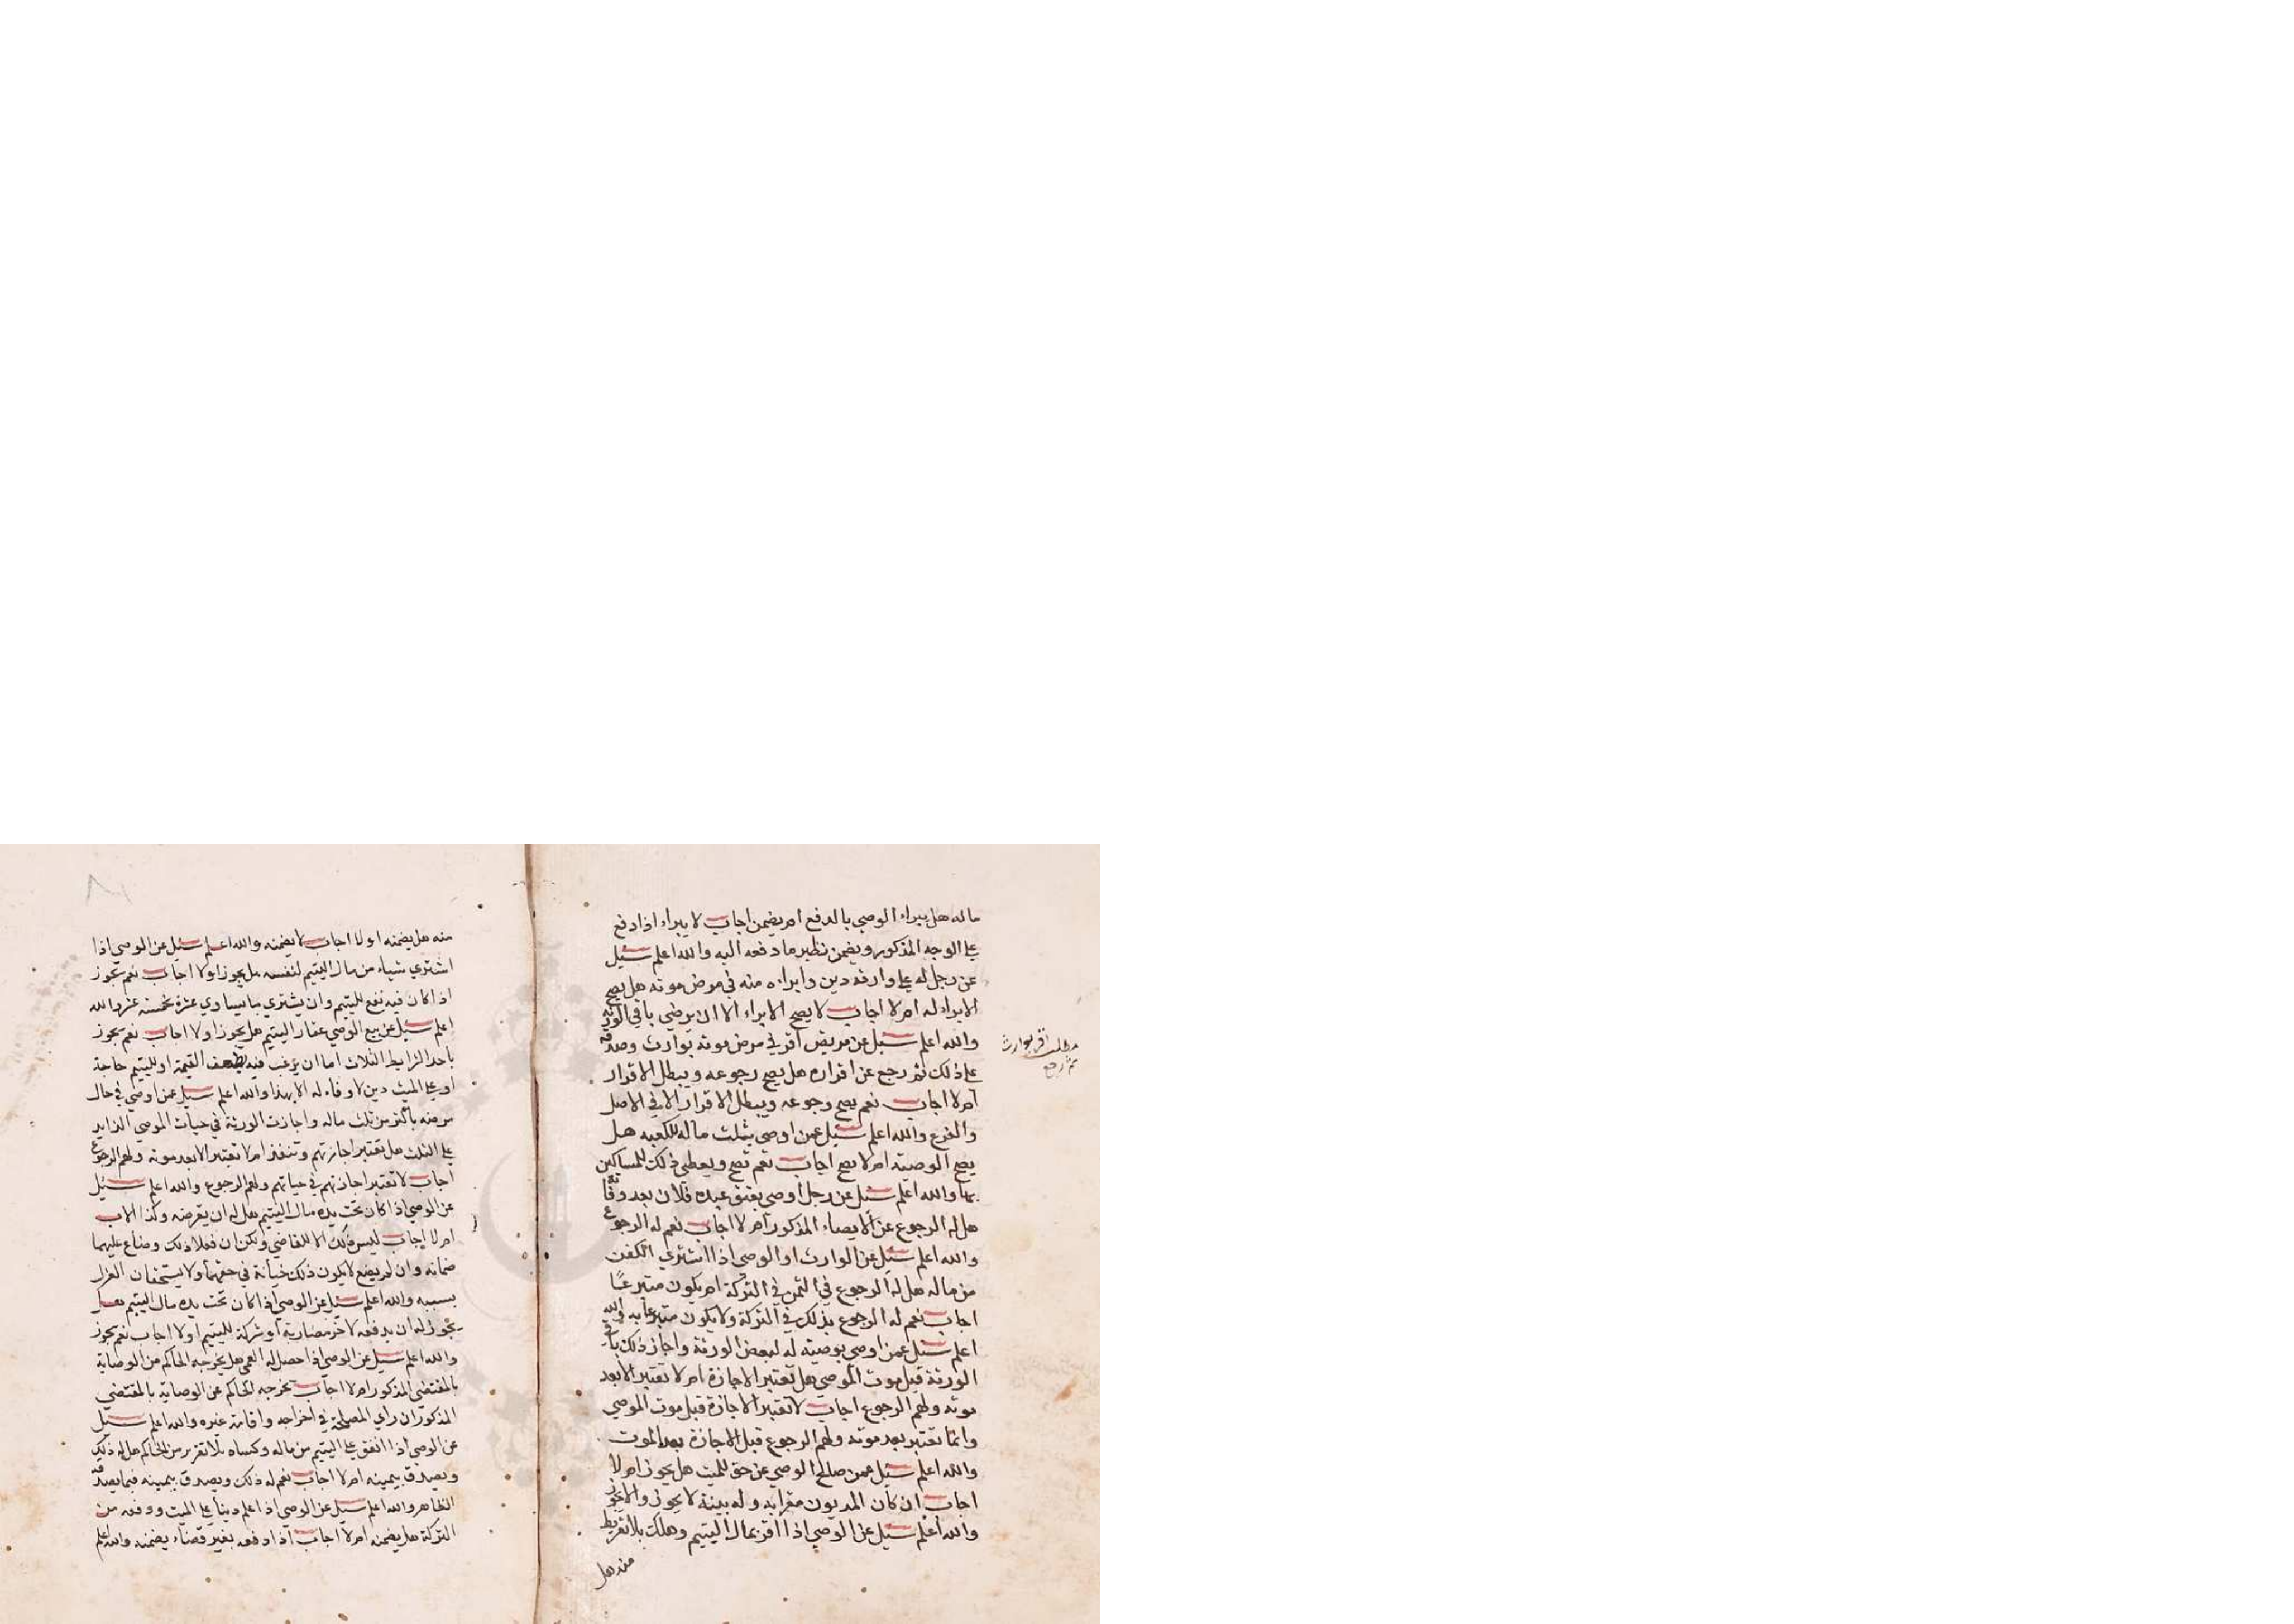 ماله هل يبراء الوصي بالدفع ام يضمن اجاب لا يبراء اذا دفع
علي الوجه المذكور ويضمن نظير ما دفعه اليه والله اعلم سيل
عن رجل له علي وارثه دين وابراءه منه في مرض موته هل يصح
الابراء له ام لا اجاب لا يصح الابراء الا ان يرضي باقي الورثة
والله اعلم سيل عن مريض اقر في مرض موته بوارث وصدقه
علي ذلك ثم رجع عن اقراره هل يصح رجوعه ويبطل الاقرار
ام لا اجاب نعم يصح رجوعه ويبطل الاقرار الا في الاصل
والفرع والله اعلم سيل عمن اوصي بثلث ماله للكعبه هل
يصح الوصية ام لا يصح اجاب نعم تصح ويعطي ذلك للمساكين
بها والله اعلم سيل عن رجل اوصي بعتق عبده فلان بعد وفاته
هل له الرجوع عن الايصاء المذكور ام لا اجاب نعم له الرجوع
والله اعلم سيل عن الوارث او الوصي اذا اشتري الكفن
من ماله هل له الرجوع في الثمن في التركة ام يكون متبرعًا
اجاب نعم له الرجوع بذلك في التركة ولا يكون متبرعا به والله
اعلم سيل عمن اوصي بوصيته له لبعض الورثة واجاز ذلك باقي
الورثة قبل موت الموصي هل تعتبر الاجازة ام لا تعتبر الا بعد
موته ولهم الرجوع اجاب لا تعتبر الاجازة قبل موت الموصي
وانما تعتبر بعد موته ولهم الرجوع قبل الاجازة بعد الموت
والله اعلم سيل عمن صالح الوصي عن حق للميت هل يجوز ام لا
اجاب ان كان المديون مقرا به وله بينة لا يجوز والا يجوز
والله اعلم سيل عن الوصي اذا اقر بمال اليتيم وهلك بلا تفريط
منه هل
مطلب اقر بوارث
ثم رجع
منه هل يضمنه او لا اجاب لا يضمنه والله اعلم سيل عن الوصي اذا
اشتري شياء من مال اليتيم لنفسه هل يجوز اولا اجاب نعم يجوز
اذا كان فيه نفع لليتيم وان يشتري ما يساوي عشرة بخمسة عشر والله
اعلم سيل عن بيع الوصي عقار اليتيم هل يجوز اولا اجاب نعم يجوز
باحد الشرايط الثلاث اما ان يرغب فيه بضعف القيمة او لليتيم حاجة
او علي الميت دين لا وفاء له الا بهذا والله اعلم سيل عمن اوصي في حال
مرضه باكثر من ثلث ماله واجازت الورثة في حيات الموصي الزايد
علي الثلث هل تعتبر اجازتهم وتنفذ ام لا تعتبر الا بعد موته ولهم الرجوع
اجاب لا تعتبر اجازتهم في حياتهم ولهم الرجوع والله اعلم سيل
عن الوصي اذا كان تحت يده مال اليتيم هل له ان يقرضه وكذا الاب
ام لا اجاب ليس ذلك الا للقاضي ولكن ان فعلا ذلك وضاع عليهما
ضمانه وان لم يضع لا يكون ذلك خيانة في حقهما ولا يستحقان العزل
بسببه والله اعلم سيل عن الوصي اذا كان تحت يده مال اليتيم هل
يجوز له ان يدفعه لاخر مضاربة او شركة لليتيم اولا اجاب نعم يجوز
والله اعلم سيل عن الوصي اذا حصل له العمي هل يخرجه الحاكم من الوصاية
بالمقتضي المذكور ام لا اجاب يخرجه الحاكم عن الوصاية بالمقتضي
المذكور ان راي المصلحة في اخراجه واقامة غيره والله اعلم سيل
عن الوصي اذا انفق علي اليتيم من ماله وكساه بلا تقرير من الحاكم هل له ذلك
ويصدق بيمينه ام لا اجاب نعم له ذلك ويصدق بيمينه فيما يصدقه
الظاهر والله اعلم سيل عن الوصي اذا علم دينا علي الميت ودفعه من
التركة هل يضمنه ام لا اجاب اذا دفعه بغير قضاء يضمنه والله اعلم